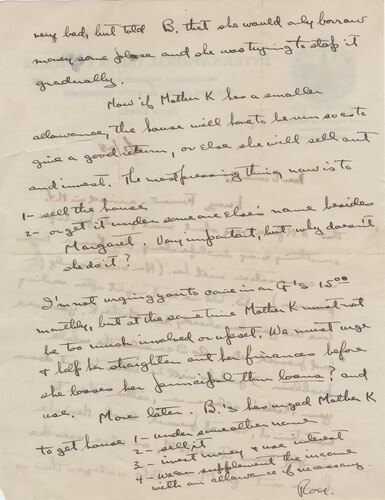 very bad, but told B. that she would only borrow
money some place and she was trying to stop it
gradually.
Now if Mother K has a smaller
allowance, the house will have to be run so as to
give a good return, or else she will sell out
and invest. The most pressing thing now is to
1- sell the house.
2- or get it under someone else's name besides
Margaret. Very important, but why doesn't
she do it?
I'm not urging you to come in on G's 15.00
monthly, but at the same time Mother K must not
be too much involved or upset. We must urge
& help her straighten out her finances before
she losses her thru loans? and
use. More later. B. has urged Mother K
to get house 1- under some other name
2- sell it
3- invest money & use interest
4- we can supplement the income
with an allowance if necessary.
Roy.